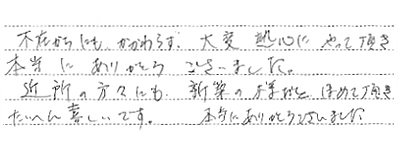 不在がちにも、かかわらず、大変 熱心に やって頂き
本当に ありがとう ございました。
近所の方々にも 新築の様だと ほめて頂き
たいへん喜しいです。 本当にありがとうございました